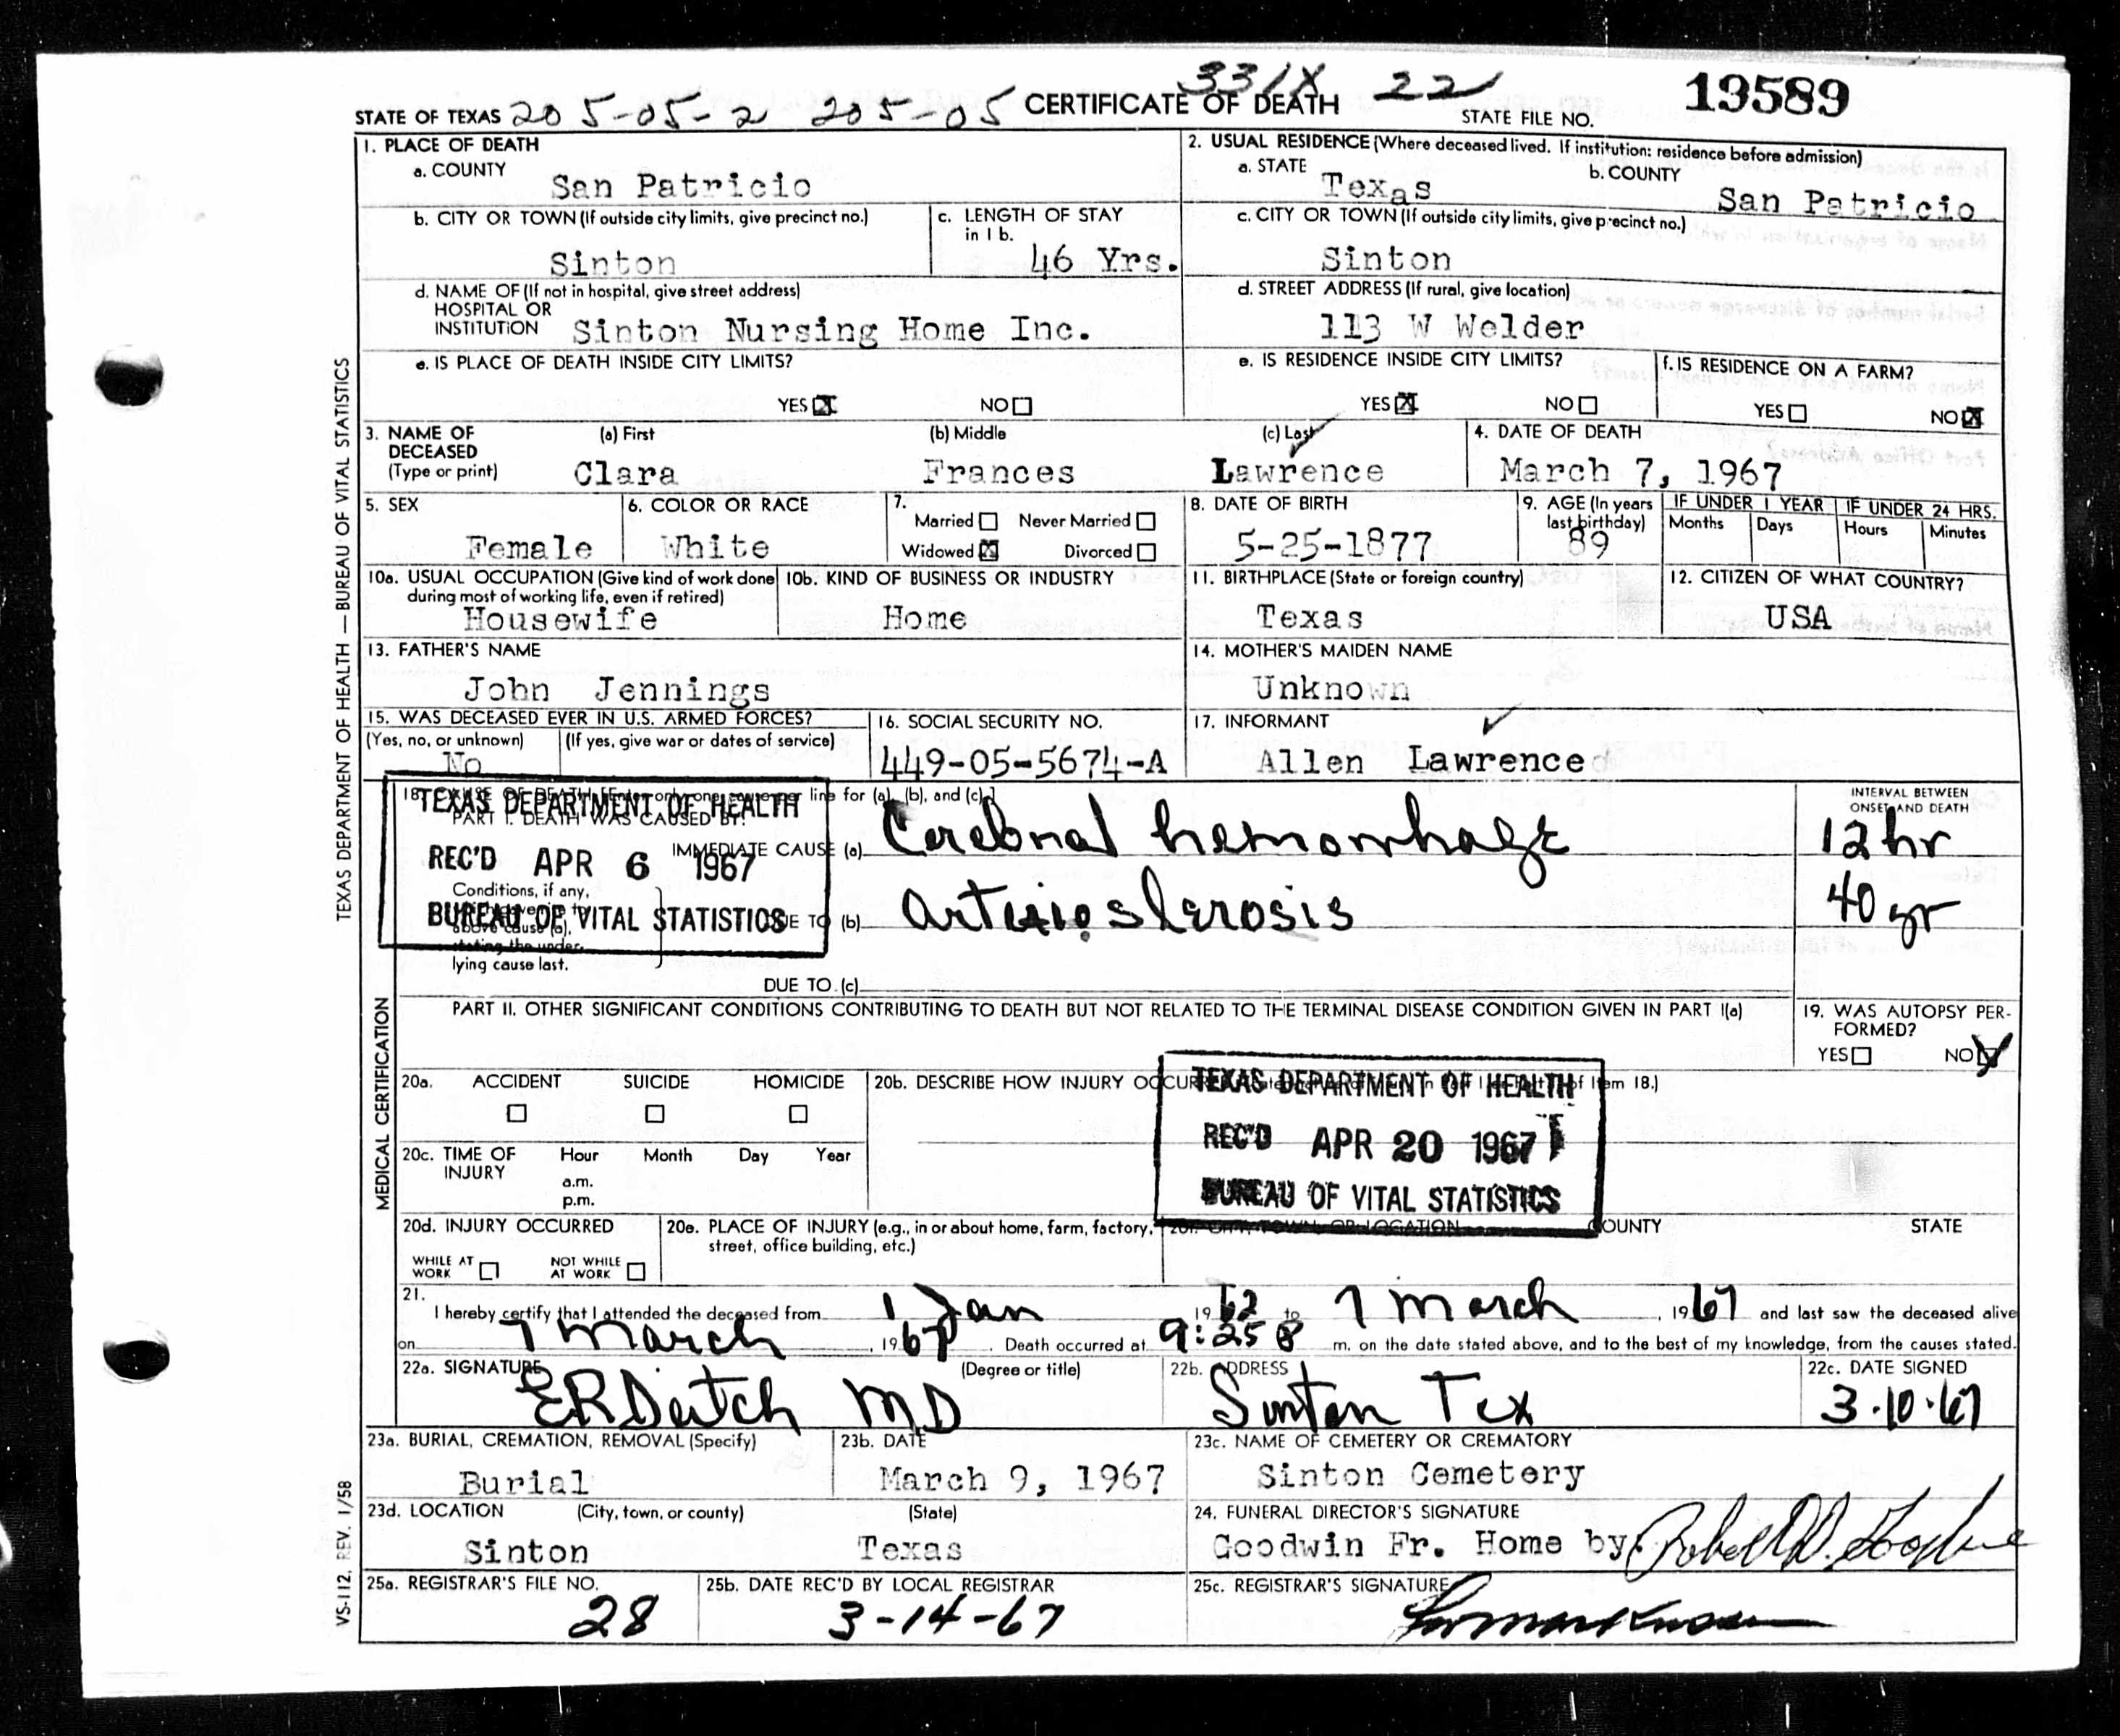 STATE OF TEXAS 205-05-2 205-05 CERTIFICATE OF DEATH 331X 22 STATE FILE NO. 19589
1. PLACE OF DEATH
a. COUNTY San Patricio
2. USUAL RESIDENCE (Where deceased lived. If institution: residence before admission)
a. STATE Texas b. COUNTY San Patricio
b. CITY OR TOWN (If outside city limits, give precinct no.) Sinton
c. LENGTH OF STAY in 1 b. 46 Yrs.
c. CITY OR TOWN (If outside city limits, give precinct no.) Sinton
d. NAME OF (If not in hospital, give street address)
HOSPITAL OR
INSTITUTION Sinton Nursing Home Inc.
d. STREET ADDRESS (If rural, give location)
113 W Welder
e. IS PLACE OF DEATH INSIDE CITY LIMITS?
YES X NO
e. IS RESIDENCE INSIDE CITY LIMITS?
YES X NO
f. IS RESIDENCE ON A FARM?
YES NO X
3. NAME OF DECEASED (Type or print)
(a) First (b) Middle (c) Last
Clara Frances Lawrence
4. DATE OF DEATH
March 7, 1967
5. SEX
Female
6. COLOR OR RACE
White
7.
Married Never Married
Widowed X Divorced
8. DATE OF BIRTH
5-25-1877
9. AGE (In years last birthday)
89
IF UNDER 1 YEAR
Months Days
IF UNDER 24 HRS.
Hours Minutes
10a. USUAL OCCUPATION (Give kind of work done during most of working life, even if retired)
Housewife
10b. KIND OF BUSINESS OR INDUSTRY
Home
11. BIRTHPLACE (State or foreign country)
Texas
12. CITIZEN OF WHAT COUNTRY?
USA
13. FATHER'S NAME
John Jennings
14. MOTHER'S MAIDEN NAME
Unknown
15. WAS DECEASED EVER IN U.S. ARMED FORCES?
(Yes, no, or unknown) (If yes, give war or dates of service)
No
16. SOCIAL SECURITY NO.
449-05-5674-A
17. INFORMANT
Allen Lawrence
18. CAUSE OF DEATH [Enter only one cause per line for (a), (b), and (c).]
PART I. DEATH WAS CAUSED BY:
IMMEDIATE CAUSE (a) Cerebral hemorrhage
INTERVAL BETWEEN ONSET AND DEATH
12 hr
TEXAS DEPARTMENT OF HEALTH
REC'D APR 6 1967
BUREAU OF VITAL STATISTICS
Conditions, if any,
above cause (a),
stating the under-
lying cause last.
DUE TO (b) Arteriosclerosis
40 yr
DUE TO (c)
PART II. OTHER SIGNIFICANT CONDITIONS CONTRIBUTING TO DEATH BUT NOT RELATED TO THE TERMINAL DISEASE CONDITION GIVEN IN PART I(a)
19. WAS AUTOPSY PERFORMED?
YES NO X
20a. ACCIDENT SUICIDE HOMICIDE
20b. DESCRIBE HOW INJURY OCCURRED of Item 18.)
TEXAS DEPARTMENT OF HEALTH
REC'D APR 20 1967
BUREAU OF VITAL STATISTICS
20c. TIME OF INJURY
Hour Month Day Year
a.m.
p.m.
20d. INJURY OCCURRED
WHILE AT WORK NOT WHILE AT WORK
20e. PLACE OF INJURY (e.g., in or about home, farm, factory, street, office building, etc.)
20f. CITY, TOWN, OR LOCATION COUNTY STATE
21.
I hereby certify that I attended the deceased from 1 Jan 1962 to 7 March, 1967 and last saw the deceased alive
on 7 March, 1967. Death occurred at 9:25 m. on the date stated above, and to the best of my knowledge, from the causes stated.
22a. SIGNATURE (Degree or title)
MD
22b. ADDRESS
Sinton Tex
22c. DATE SIGNED
3-10-67
23a. BURIAL, CREMATION, REMOVAL (Specify)
Burial
23b. DATE
March 9, 1967
23c. NAME OF CEMETERY OR CREMATORY
Sinton Cemetery
23d. LOCATION (City, town, or county) (State)
Sinton Texas
24. FUNERAL DIRECTOR'S SIGNATURE
Goodwin Fr. Home by
25a. REGISTRAR'S FILE NO.
28
25b. DATE REC'D BY LOCAL REGISTRAR
3-14-67
25c. REGISTRAR'S SIGNATURE
TEXAS DEPARTMENT OF HEALTH — BUREAU OF VITAL STATISTICS
MEDICAL CERTIFICATION
VS-112, REV. 1/58